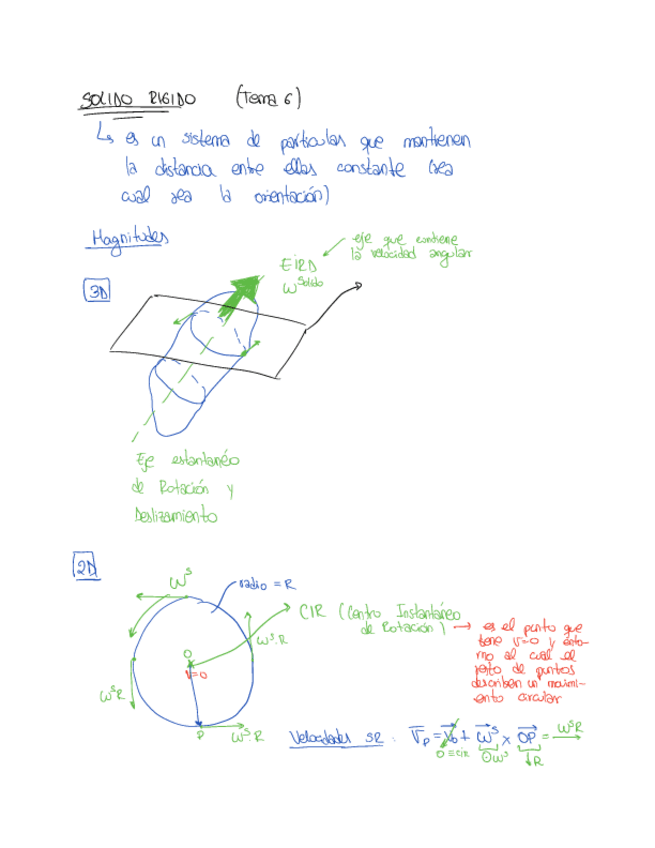 SOLIDO RIGIDO (Tema 6)
↳ es un sistema de particulas que mantienen
la distancia entre ellas constante (sea
cual sea la orientación)
Magnitudes
eje que contiene
la velocidad angular
EIRD
ω^Solido
3D
Eje estantanéo
de Rotación y
Deslizamiento
2D
ω^s
radio = R
CIR (Centro Instantáneo
de Rotación) → es el punto que
tene v=0 y entor-
no al cual el
resto de puntos
describen un movimi-
ento circular
ω^s·R
O
v=0
ω^sR
P
ω^s·R
Velocidades SR: V_P = V_0 + ω^s × OP = ω^sR
0 ≡ CIR
⊙ω^s
↓R